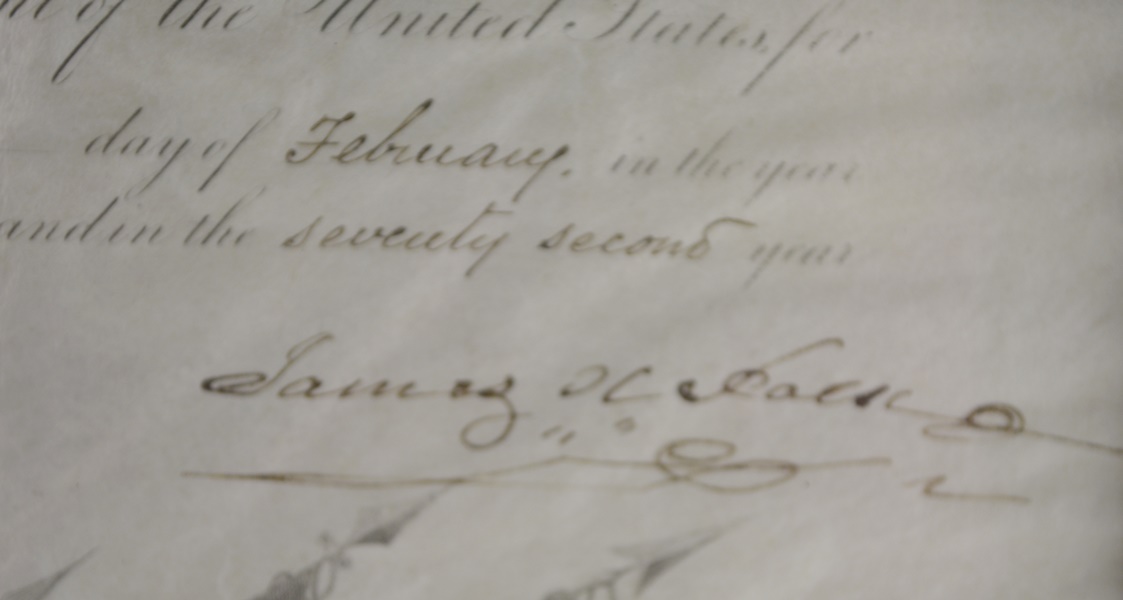 of the United States, for
day of February. in the year
and in the seventy second year
James K Polk